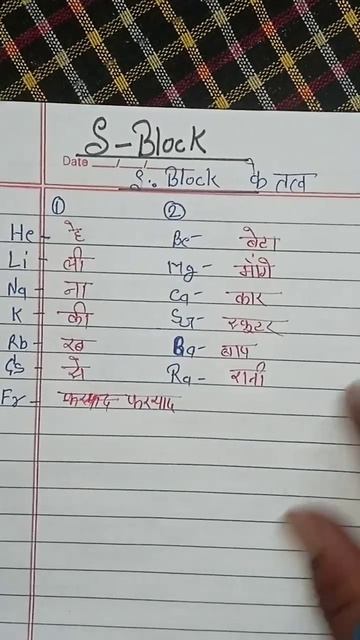 S-Block
Date
S. Block के तत्व
① ②
He - हे Be - बेटा
Li - ली Mg - मांगे
Na - ना Ca - कार
K - की Sr - स्कूटर
Rb - रब Ba - बाप
Cs - से Ra - रानी
Fr - फरयाद